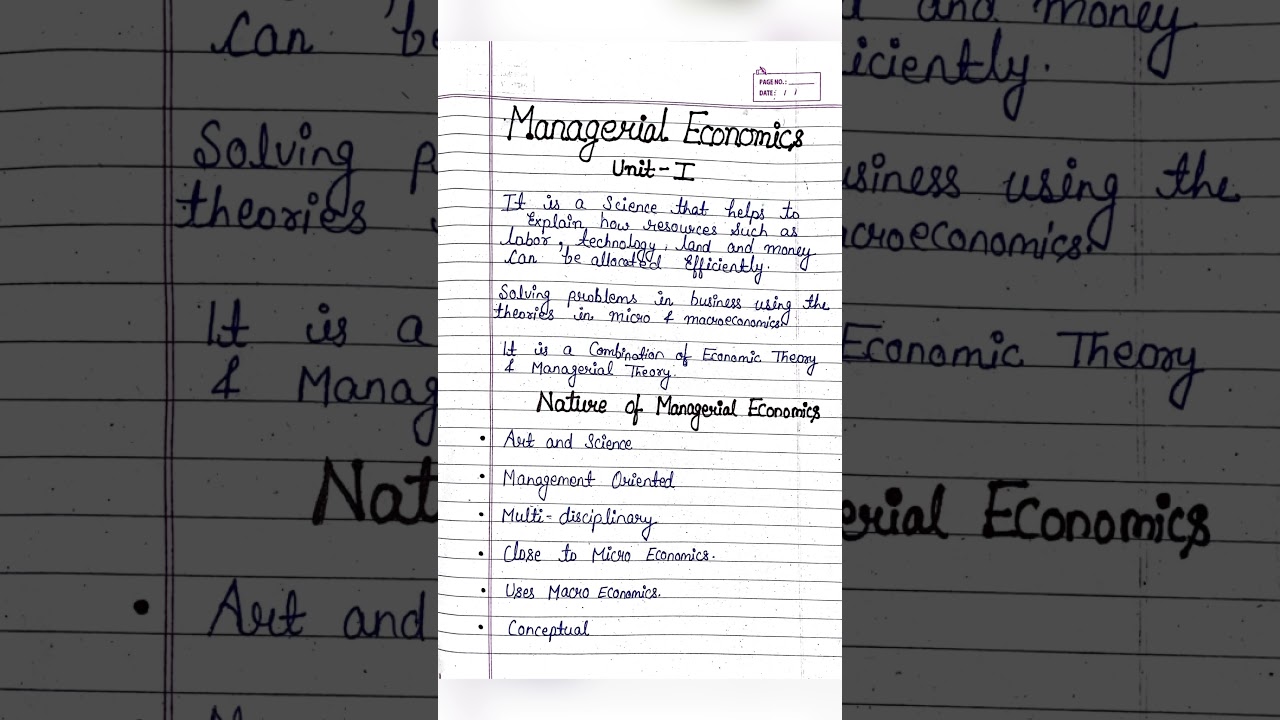 PAGE NO.:
DATE: / /
Managerial Economics
Unit - I
It is a Science that helps to
Explain how resources such as
labor, technology, land and money
can be allocated Efficiently.
Solving problems in business using the
theories in micro & macroeconomics
It is a Combination of Economic Theory
& Managerial Theory.
Nature of Managerial Economics
• Art and Science
• Management Oriented
• Multi-disciplinary
• Close to Micro Economics.
• Uses Macro Economics.
• Conceptual